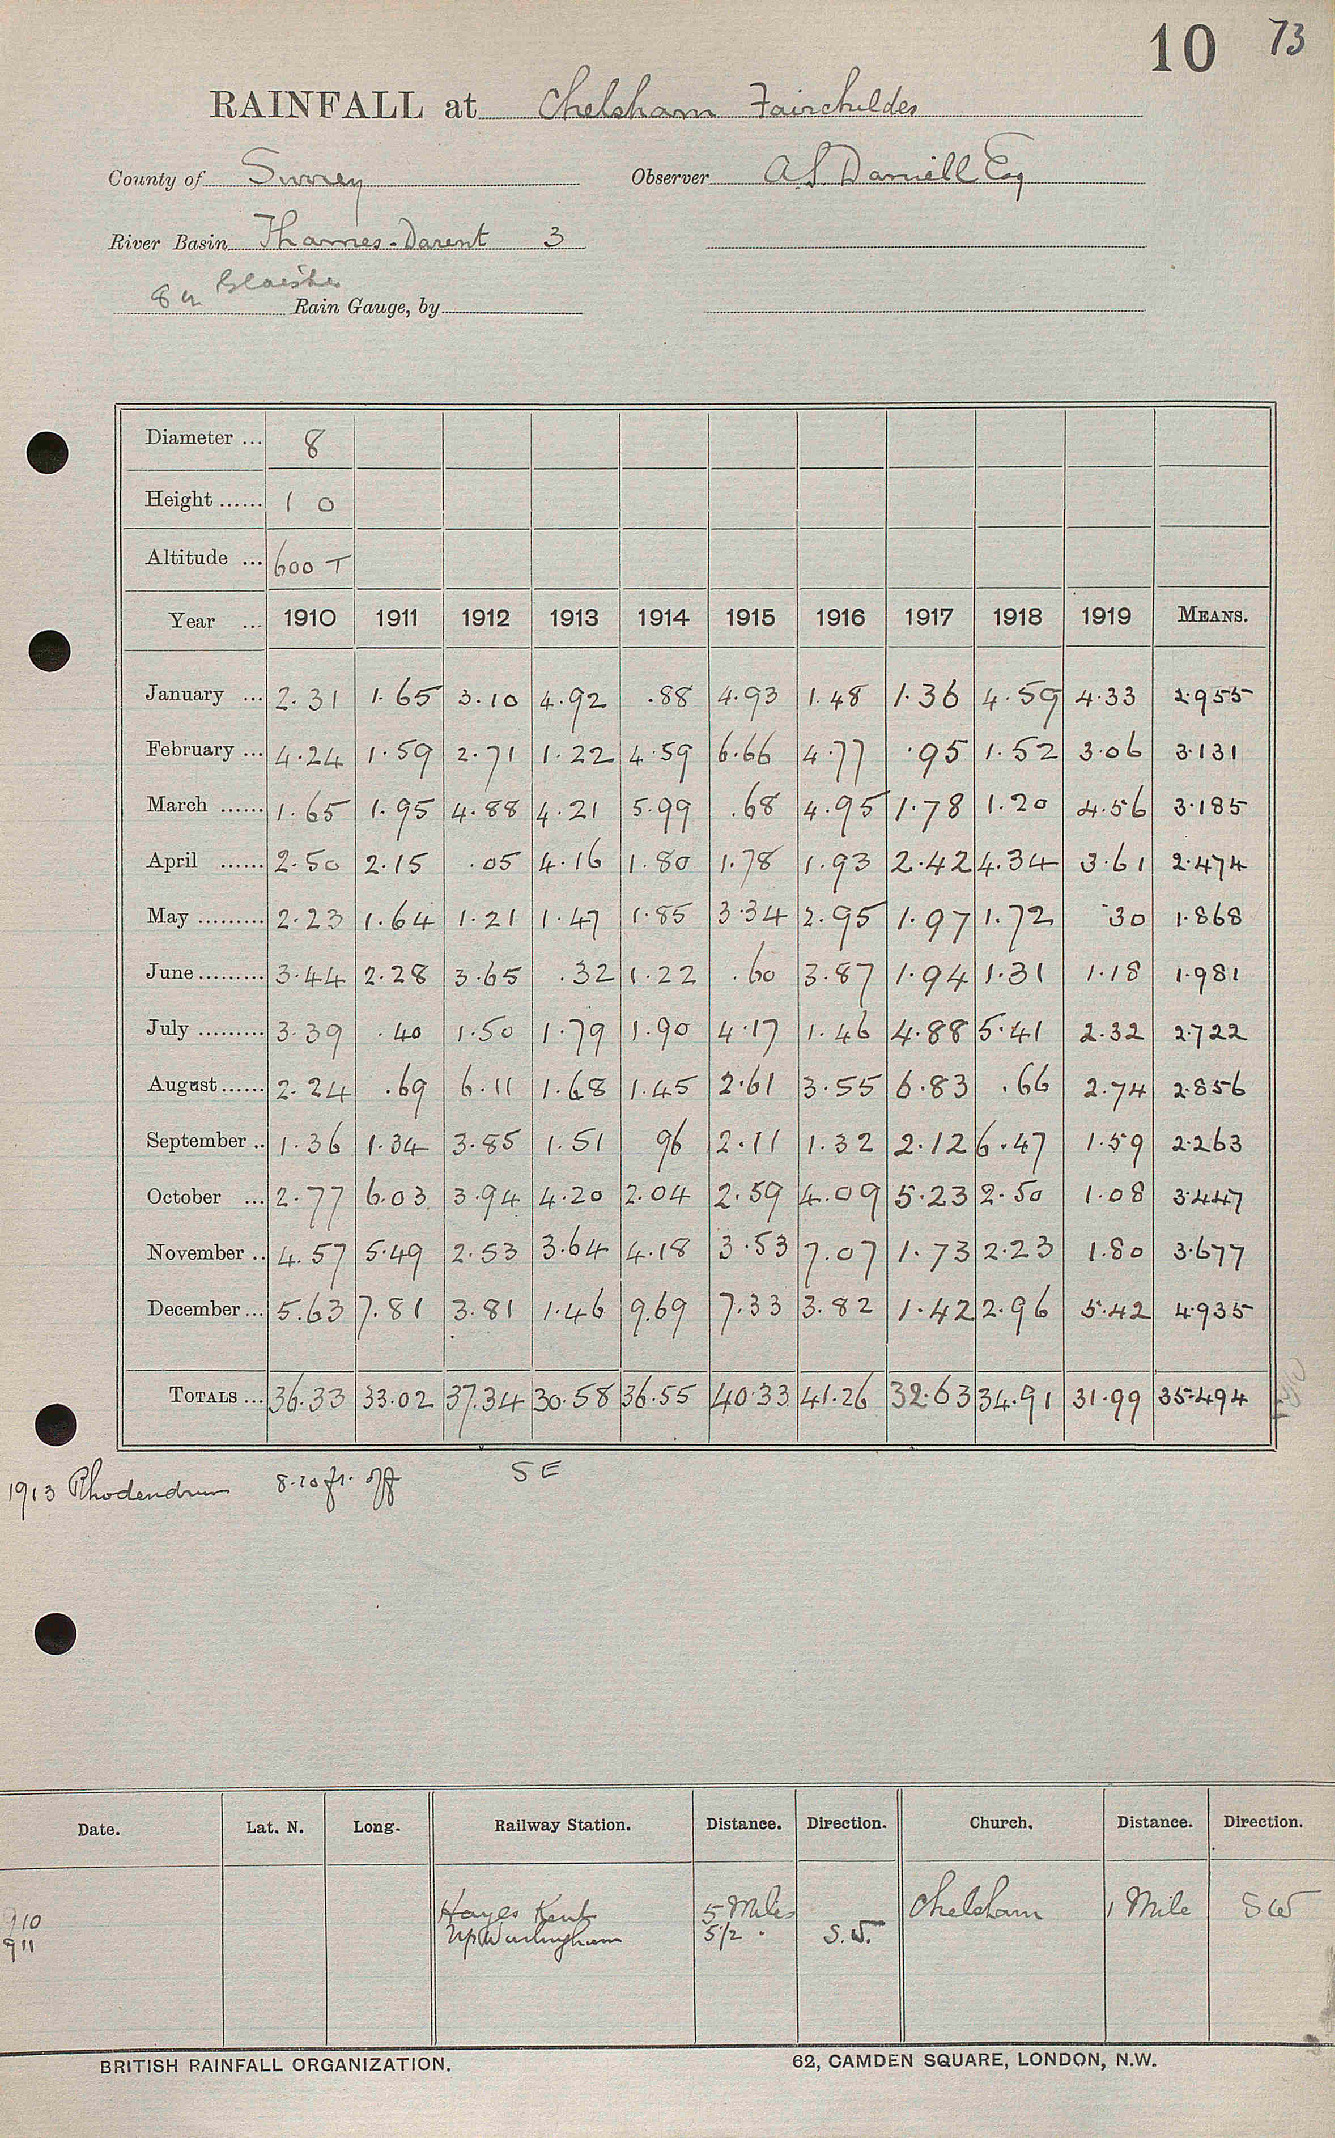 10 73
RAINFALL at Chelsham Fairchildes
County of Surrey Observer A S. Daniell Esq
River Basin Thames-Darent 3
8 in Glaisher
Rain Gauge, by
Diameter ... 8
Height ...... 1 0
Altitude ... 600 T
Year ... 1910 1911 1912 1913 1914 1915 1916 1917 1918 1919 MEANS.
January ... 2.31 1.65 3.10 4.92 .88 4.93 1.48 1.36 4.59 4.33 2.955
February ... 4.24 1.59 2.71 1.22 4.59 6.66 4.77 .95 1.52 3.06 3.131
March ...... 1.65 1.95 4.88 4.21 5.99 .68 4.95 1.78 1.20 4.56 3.185
April ...... 2.50 2.15 .05 4.16 1.80 1.78 1.93 2.42 4.34 3.61 2.474
May ......... 2.23 1.64 1.21 1.47 1.85 3.34 2.95 1.97 1.72 .30 1.868
June ......... 3.44 2.28 3.65 .32 1.22 .60 3.87 1.94 1.31 1.18 1.981
July ......... 3.39 .40 1.50 1.79 1.90 4.17 1.46 4.88 5.41 2.32 2.722
August ...... 2.24 .69 6.11 1.68 1.45 2.61 3.55 6.83 .66 2.74 2.856
September .. 1.36 1.34 3.85 1.51 96 2.11 1.32 2.12 6.47 1.59 2.263
October ... 2.77 6.03 3.94 4.20 2.04 2.59 4.09 5.23 2.50 1.08 3.447
November .. 4.57 5.49 2.53 3.64 4.18 3.53 7.07 1.73 2.23 1.80 3.677
December ... 5.63 7.81 3.81 1.46 9.69 7.33 3.82 1.42 2.96 5.42 4.935
TOTALS ... 36.33 33.02 37.34 30.58 36.55 40.33 41.26 32.63 34.91 31.99 35.494
1913 Rhodendrum 8.10 ft. off S E
Date. Lat. N. Long. Railway Station. Distance. Direction. Church. Distance. Direction.
910 Hayes Kent 5 Miles Chelsham 1 Mile SW
911 Up Warlingham 5½ . S.W.
BRITISH RAINFALL ORGANIZATION. 62, CAMDEN SQUARE, LONDON, N.W.